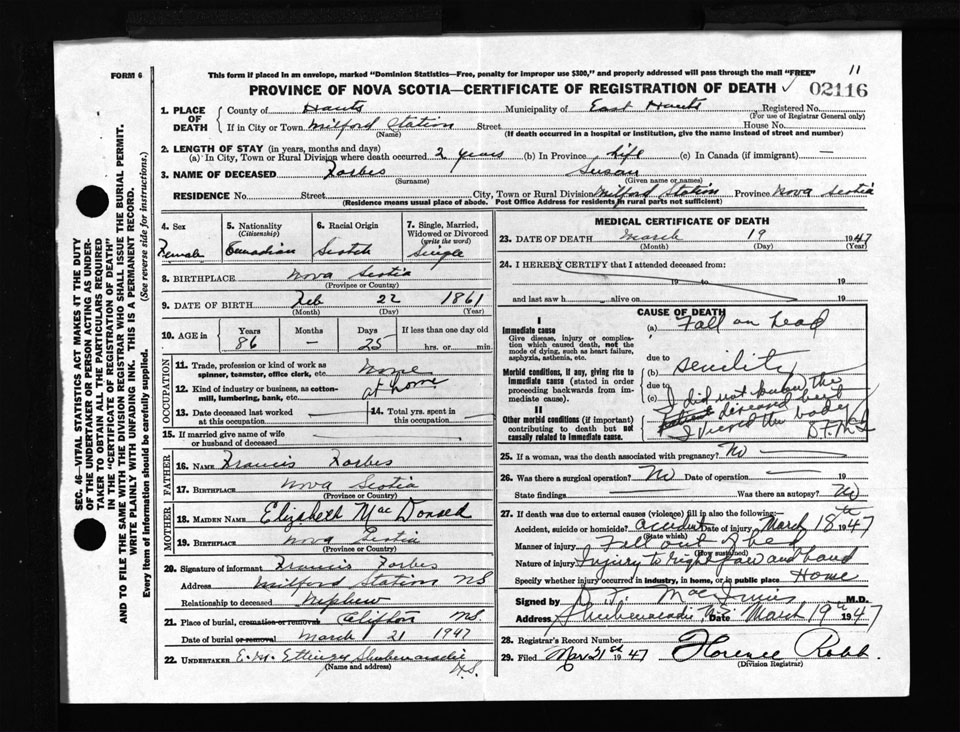 FORM 6
This form if placed in an envelope, marked "Dominion Statistics—Free, penalty for improper use $300," and properly addressed will pass through the mail "FREE"
11
PROVINCE OF NOVA SCOTIA—CERTIFICATE OF REGISTRATION OF DEATH
02116
1. PLACE OF DEATH
County of Hants Municipality of East Hants Registered No.
(For use of Registrar General only)
If in City or Town Milford Station Street House No.
(Name) (If death occurred in a hospital or institution, give the name instead of street and number)
2. LENGTH OF STAY (in years, months and days)
(a) In City, Town or Rural Division where death occurred 2 years (b) In Province Life (c) In Canada (if immigrant) —
3. NAME OF DECEASED Forbes Susan
(Surname) (Given name or names)
RESIDENCE No. Street City, Town or Rural Division Milford Station Province Nova Scotia
(Residence means usual place of abode. Post Office Address for residents in rural parts not sufficient)
SEC. 46—VITAL STATISTICS ACT MAKES AT THE DUTY
OF THE UNDERTAKER OR PERSON ACTING AS UNDER-
TAKER TO OBTAIN ALL THE PARTICULARS REQUIRED
IN THE "CERTIFICATE OF REGISTRATION OF DEATH"
AND TO FILE THE SAME WITH THE DIVISION REGISTRAR WHO SHALL ISSUE THE BURIAL PERMIT.
WRITE PLAINLY WITH UNFADING INK. THIS IS A PERMANENT RECORD.
Every item of information should be carefully supplied. (See reverse side for instructions.)
4. Sex
Female
5. Nationality
(Citizenship)
Canadian
6. Racial Origin
Scotch
7. Single, Married,
Widowed or Divorced
(write the word)
Single
8. BIRTHPLACE Nova Scotia
(Province or Country)
9. DATE OF BIRTH Feb 22 1861
(Month) (Day) (Year)
10. AGE in
Years Months Days If less than one day old
86 — 25 hrs. or min.
OCCUPATION
11. Trade, profession or kind of work as
spinner, teamster, office clerk, etc.
12. Kind of industry or business, as cotton-
mill, lumbering, bank, etc. at home
13. Date deceased last worked
at this occupation
14. Total yrs. spent in
this occupation
15. If married give name of wife
or husband of deceased
FATHER
16. NAME Francis Forbes
17. BIRTHPLACE Nova Scotia
(Province or Country)
MOTHER
18. MAIDEN NAME Elizabeth MacDonald
19. BIRTHPLACE Nova Scotia
(Province or Country)
20. Signature of informant Francis Forbes
Address Milford Station NS
Relationship to deceased Nephew
21. Place of burial, cremation or removal Clifton NS.
Date of burial or removal March 21 1947
22. UNDERTAKER Ettinger Shubenacadie
(Name and address) N.S.
MEDICAL CERTIFICATE OF DEATH
23. DATE OF DEATH March 19 1947
(Month) (Day) (Year)
24. I HEREBY CERTIFY that I attended deceased from:
19 to 19
and last saw h alive on 19
CAUSE OF DEATH
I
Immediate cause
Give disease, injury or complica-
tion which caused death, not the
mode of dying, such as heart failure,
asphyxia, asthenia, etc.
(a) Fall on head
due to
Morbid conditions, if any, giving rise to
immediate cause (stated in order
proceeding backwards from im-
mediate cause).
(b) senility
due to
(c) I did not know the
deceased but
I viewed the body
II
Other morbid conditions (if important)
contributing to death but not
causally related to immediate cause.
25. If a woman, was the death associated with pregnancy? No
26. Was there a surgical operation? No Date of operation 19
State findings Was there an autopsy? No
27. If death was due to external causes (violence) fill in also the following:—
Accident, suicide or homicide? accident Date of injury March 18th 1947
(State which)
Manner of injury Fell out of bed
(How sustained)
Nature of injury Injury to right jaw and hand
Specify whether injury occurred in industry, in home, or in public place Home
Signed by MacInnis M.D.
Address Shubenacadie, N.S. Date March 19th 1947
28. Registrar's Record Number
29. Filed Mar 21st 1947 Florence Robb.
(Division Registrar)